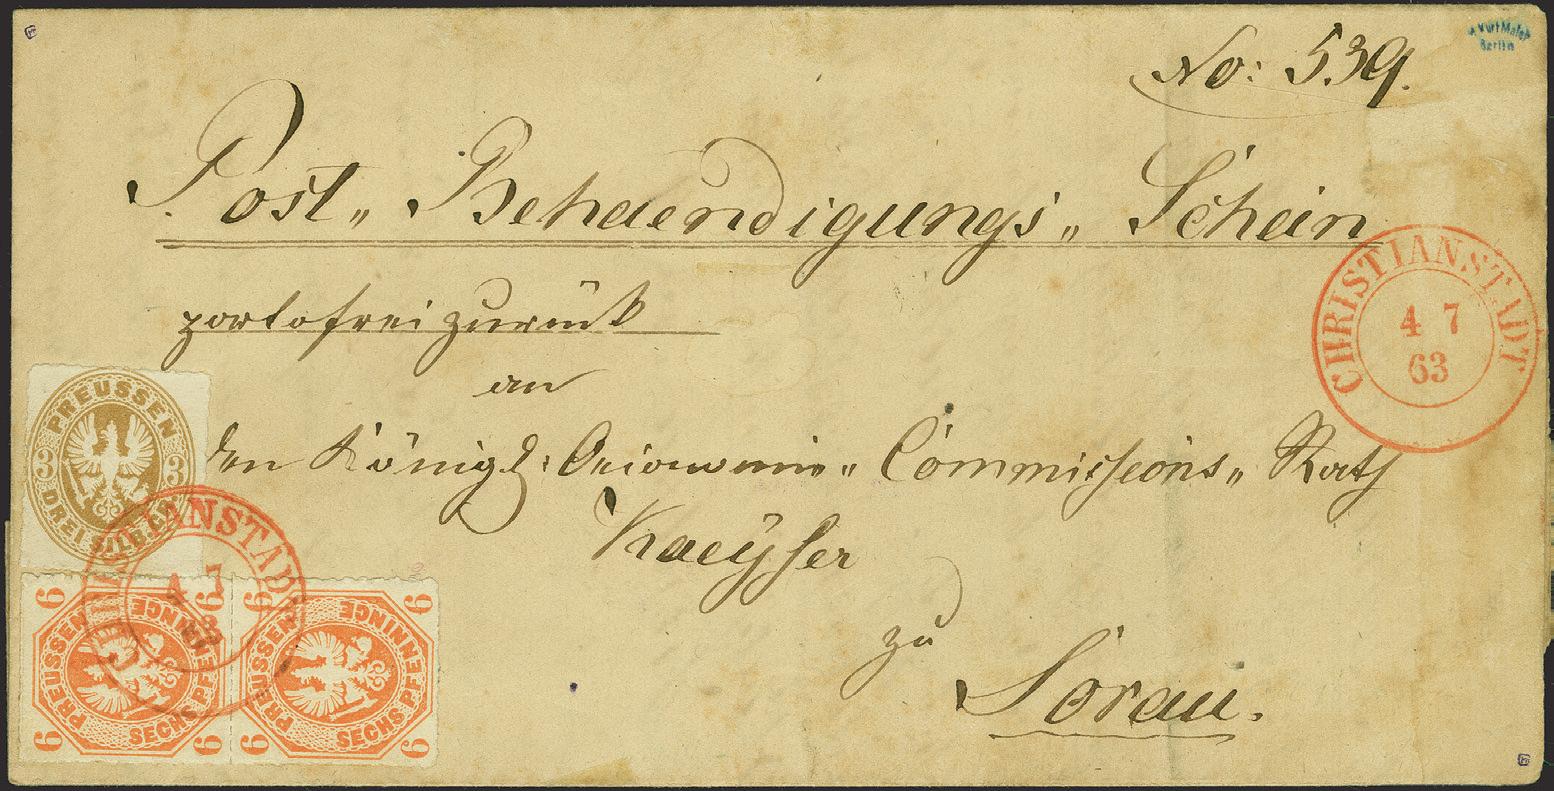 No: 539.
Kurt Maier
Berlin
Post„ Behaendigungs„ Schein
portofrei zurück
an
den Königl: Oeconomie„ Commissions„ Rath
Kaeyser
zu
Sorau.
CHRISTIANSTADT
4 7
63
PREUSSEN
3 3
DREI SILB.GR.
CHRISTIANSTADT
4 7
63
6 6 6 6
PREUSSEN
SECHS PFENNINGE
6 6 6 6
PREUSSEN
SECHS PFENNINGE